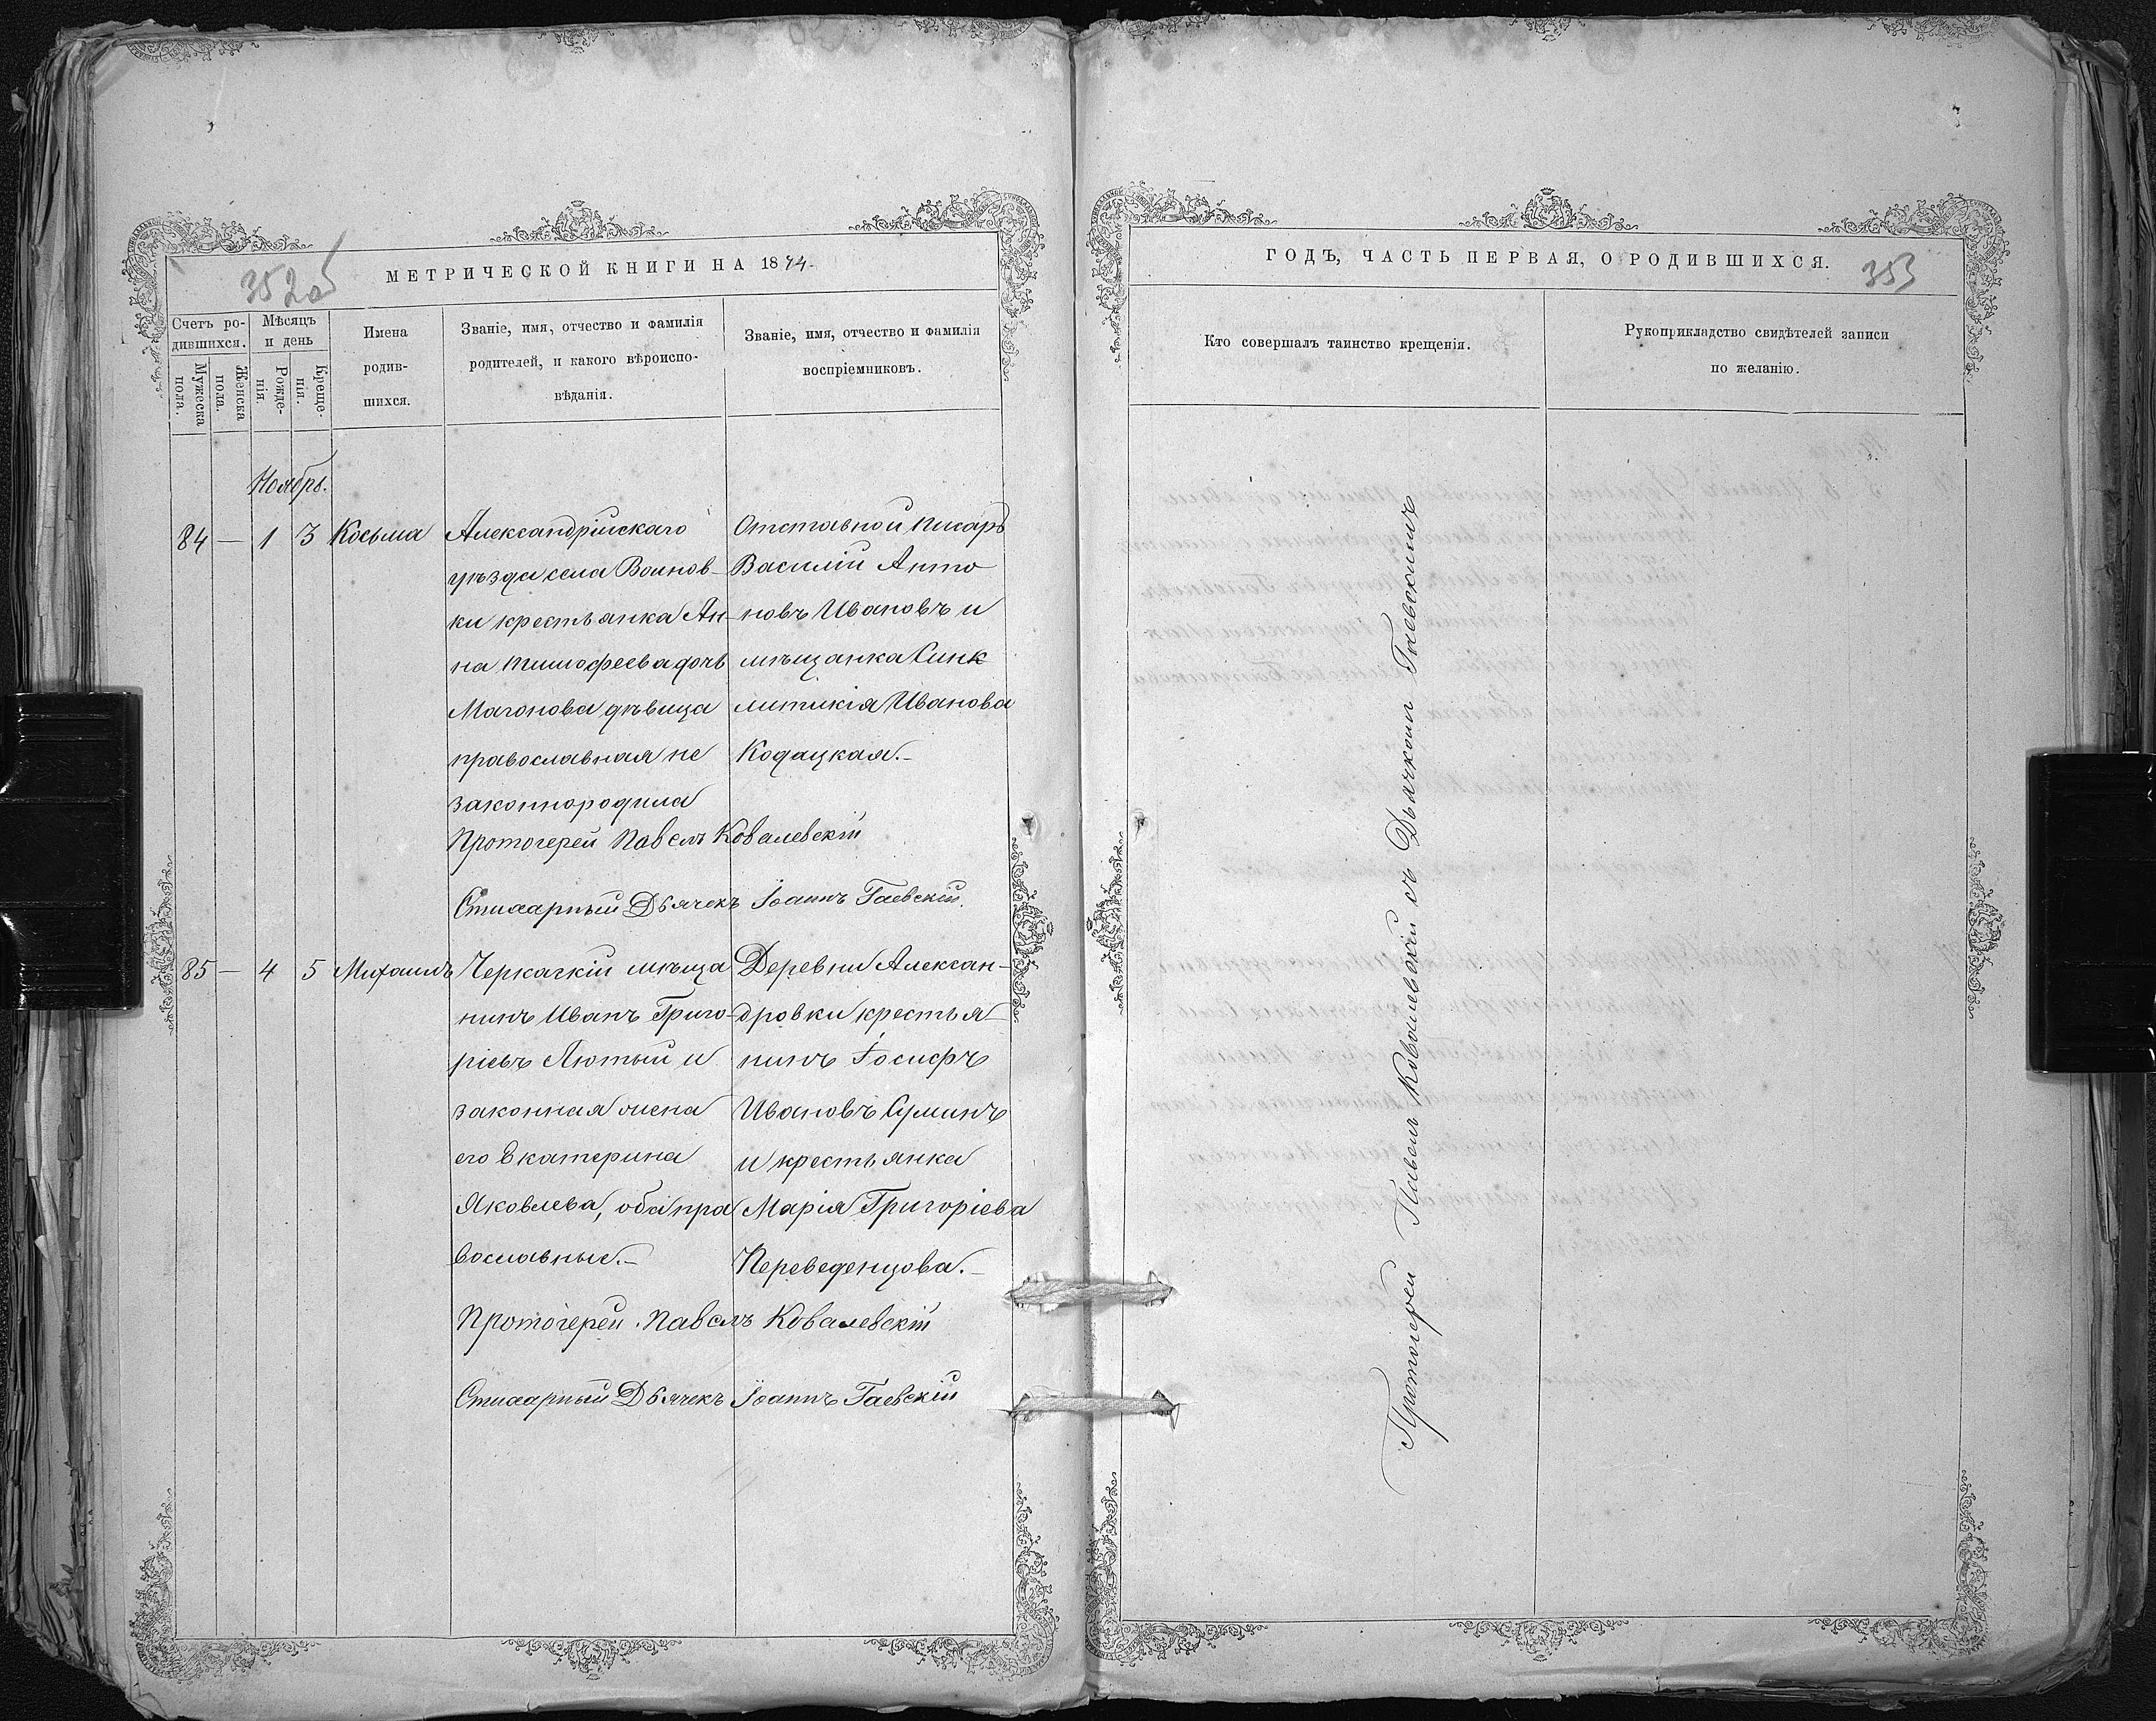 352об
МЕТРИЧЕСКОЙ КНИГИ НА 1874.
Счетъ ро-
дившихся.
Мужеска пола.
Женска пола.
Мѣсяцъ
и день
Рожде-
нія.
Креще-
нія.
Имена
родив-
шихся.
Званіе, имя, отчество и фамилія
родителей, и какого вѣроиспо-
вѣданія.
Званіе, имя, отчество и фамилія
воспріемниковъ.
Ноябрь.
84 — 1 3 Косьма
Александрійскаго
уѣзда села Воинов-
ки крестьянка Ан-
на Тимофеева дочь
Магонова дѣвица
православная не
законнородила
Отставной писарь
Василій Анто
новъ Ивановъ и
мѣщанка Синк
литикія Иванова
Кодацкая.-
Протоіерей Павелъ Ковалевскій
Стихарный Дьячекъ Іоаннъ Гаевскій.
85 — 4 5 Михаилъ
Черкаскій мѣща
нинъ Иванъ Григо-
ріевъ Лютый и
законная жена
его Екатерина
Яковлева, оба пра
вославные.-
Деревни Алексан-
дровки крестья-
нинъ Іосифъ
Ивановъ Суминъ
и крестьянка
Марія Григоріева
Переведенцова.-
Протоіерей Павелъ Ковалевскій
Стихарный Дьячекъ Іоаннъ Гаевскій
ГОДЪ, ЧАСТЬ ПЕРВАЯ, О РОДИВШИХСЯ.
353
Кто совершалъ таинство крещенія.
Рукоприкладство свидѣтелей записи
по желанію.
Протоіерей Павелъ Ковалевскій съ Дьячкомъ Гаевскимъ